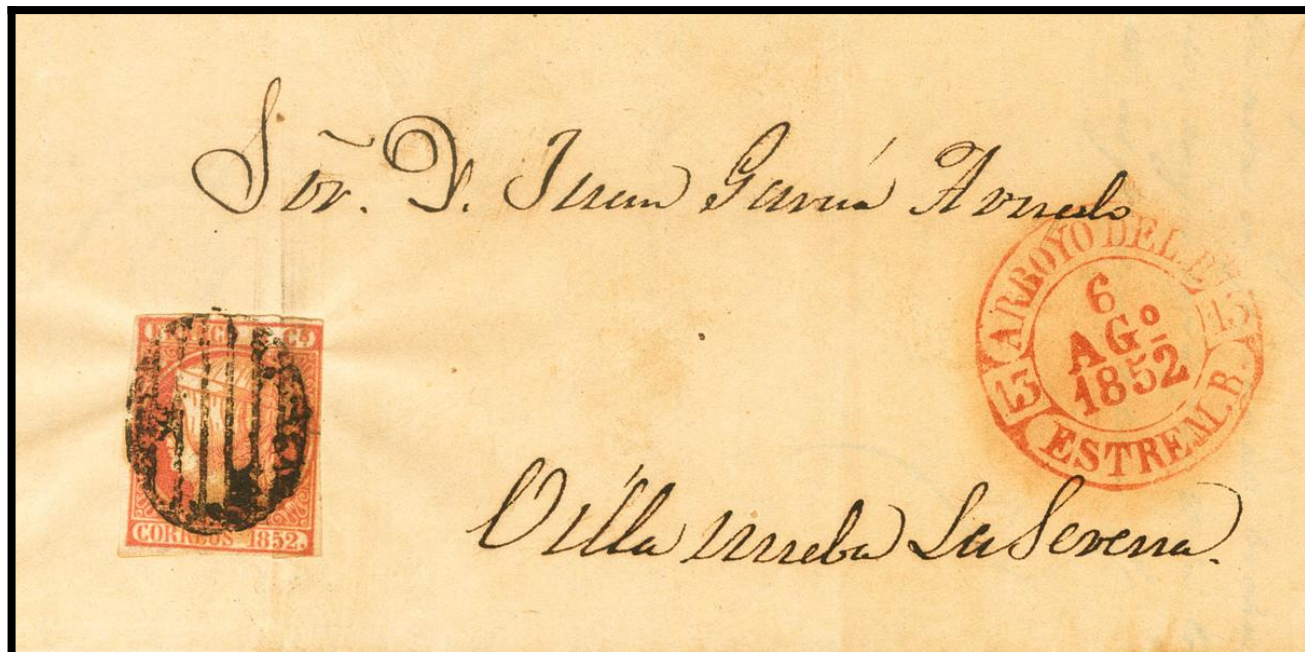 Sōr. D. Juan García
ARROYO DEL
13 13
6
AGº
1852
ESTREM. B.
CORREOS 1852.
Villa nueba La Serena.